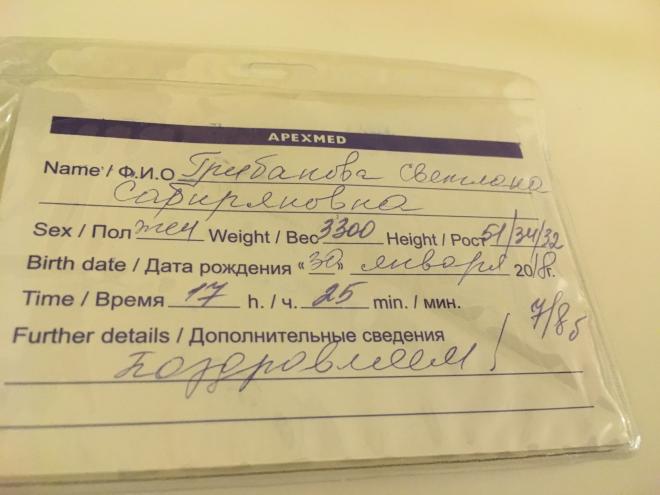 APEXMED
Name / Ф.И.О Грибанова Светлана
Сафиряновна
Sex / Пол жен Weight / Вес 3300 Height / Рост 51/34/32
Birth date / Дата рождения «30» января 2018г.
Time / Время 17 h. / ч. 25 min. / мин.
7/8б
Further details / Дополнительные сведения
Поздравляем!